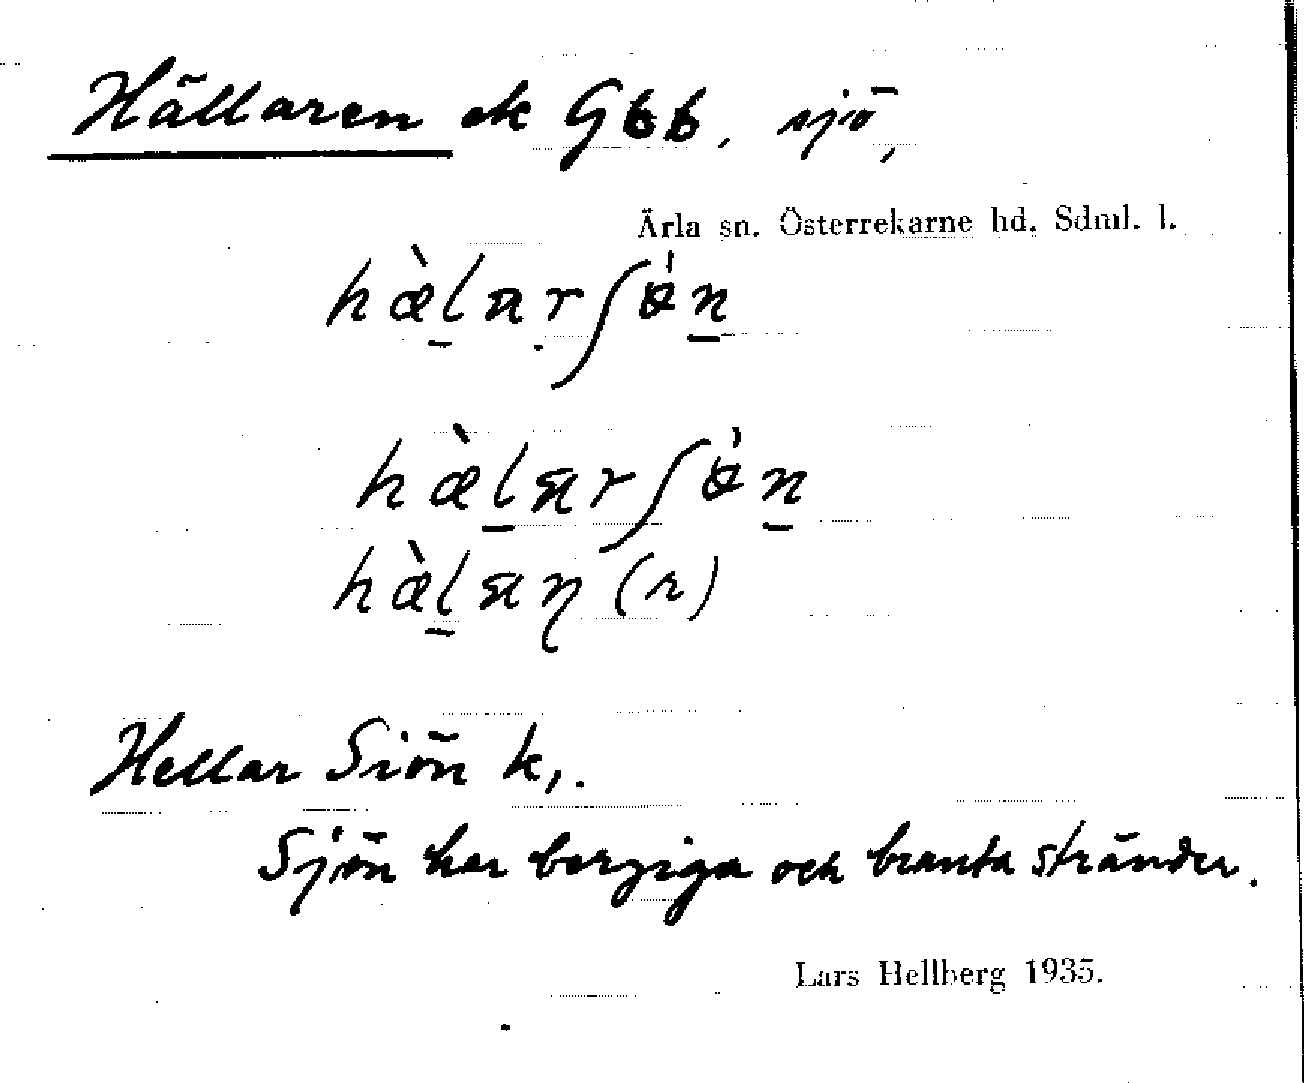 Hällaren ek Gbb. sjö,
Ärla sn. Österrekarne hd. Sdml. l.
hæ̀l̠arʃɵ́n̠
hæ̀l̠arʃɵ́n̠
hæ̀l̠aη (r)
Hellar Siön k,.
Sjön har bergiga och branta stränder.
Lars Hellberg 1935.